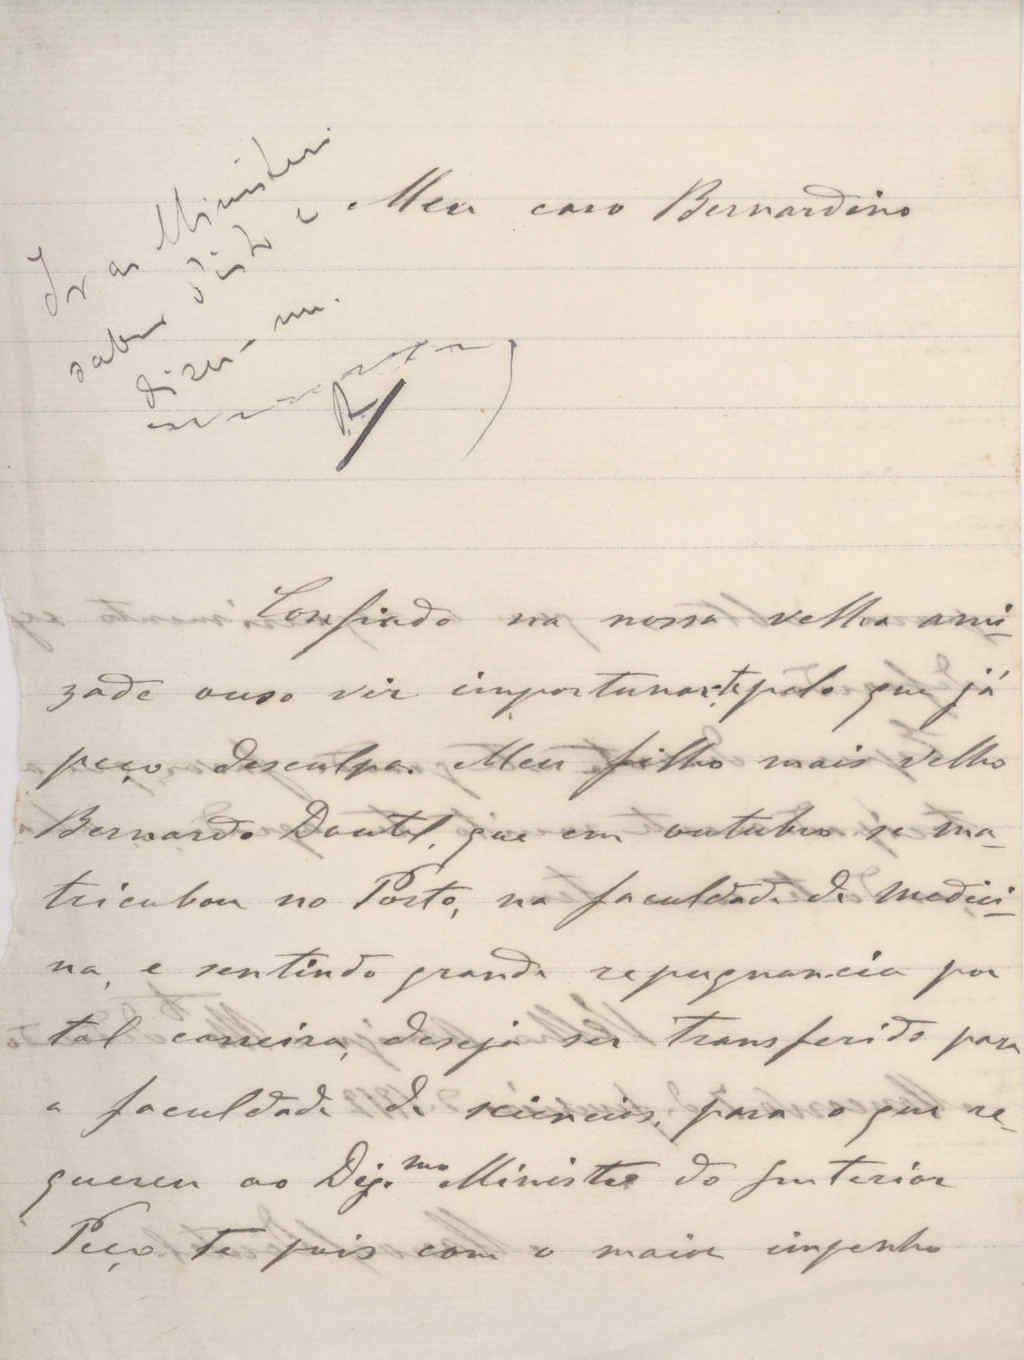 Meu caro Bernardino
Ir ao Ministerio
saber disto e
dizer-me.
Confiado na nossa velha ami-
zade ouso vir importunar-te, pelo que já
peço desculpa. Meu filho mais velho
Bernardo Doutel, que em outubro se ma-
triculou no Porto, na faculdade de medici-
na, e sentindo grande repugnancia por
tal carreira, deseja ser transferido para
a faculdade de sciencias, para o que re-
quereu ao Dig.mo Ministro do Interior
Peço te pois com o maior impenho